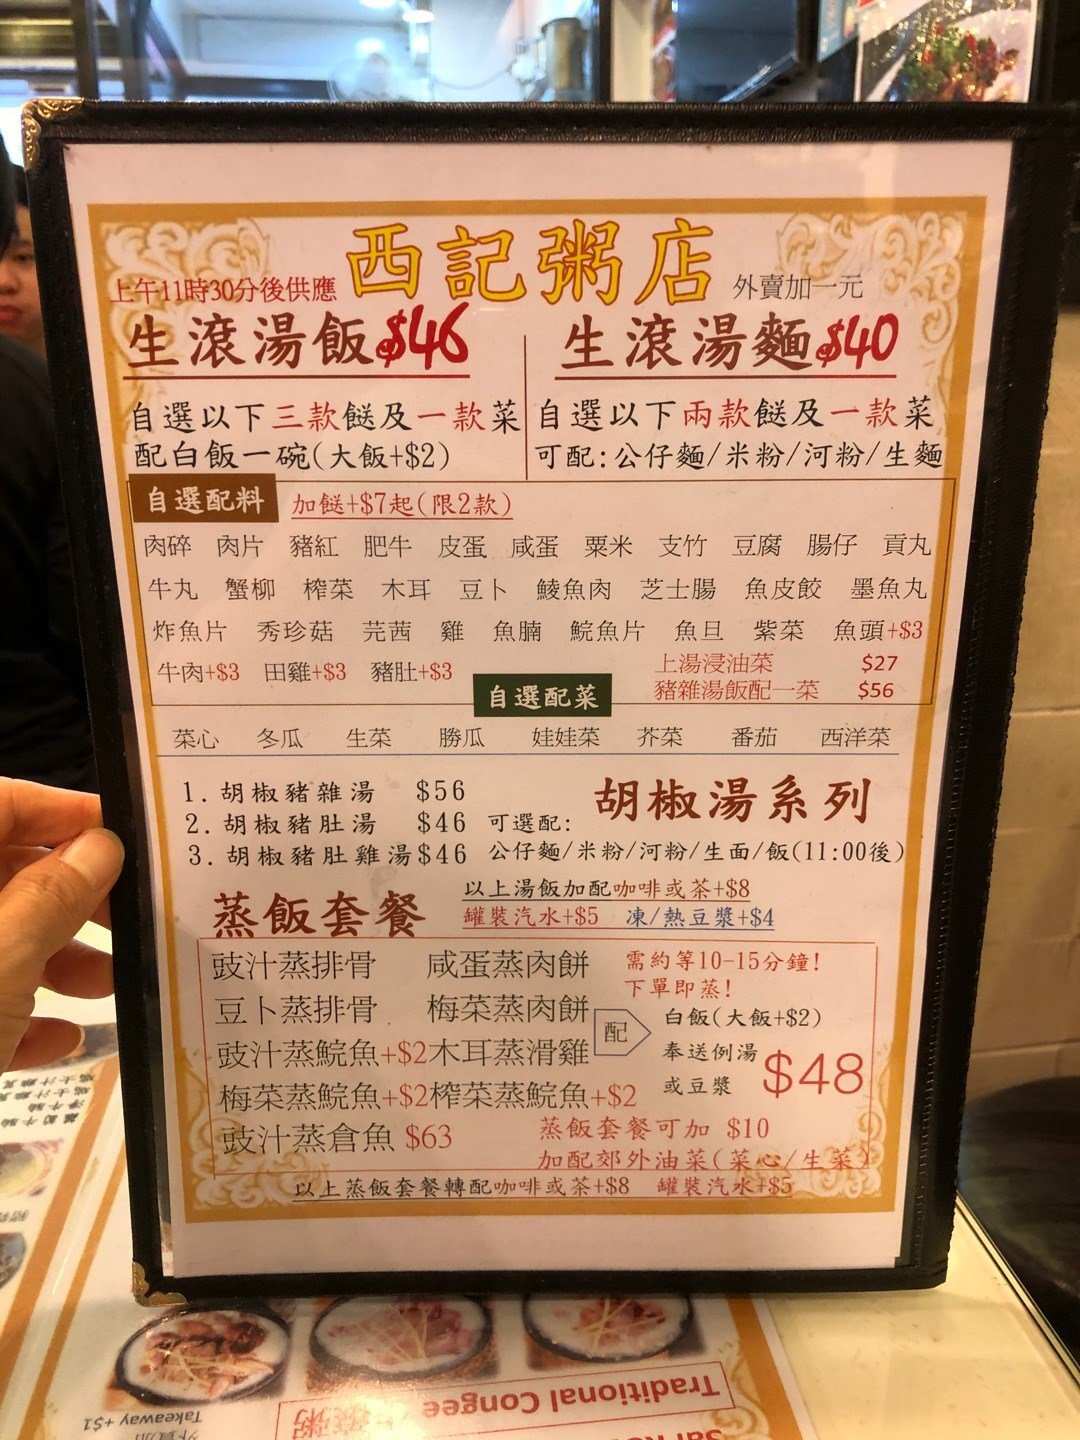 西記粥店
上午11時30分後供應
外賣加一元
生滾湯飯$46
生滾湯麵$40
自選以下三款餸及一款菜
配白飯一碗(大飯+$2)
自選以下兩款餸及一款菜
可配:公仔麵/米粉/河粉/生麵
自選配料 加餸+$7起(限2款)
肉碎 肉片 豬紅 肥牛 皮蛋 咸蛋 粟米 支竹 豆腐 腸仔 貢丸
牛丸 蟹柳 榨菜 木耳 豆卜 鯪魚肉 芝士腸 魚皮餃 墨魚丸
炸魚片 秀珍菇 芫茜 雞 魚腩 鯇魚片 魚旦 紫菜 魚頭+$3
牛肉+$3 田雞+$3 豬肚+$3
上湯浸油菜 $27
豬雜湯飯配一菜 $56
自選配菜
菜心 冬瓜 生菜 勝瓜 娃娃菜 芥菜 番茄 西洋菜
胡椒湯系列
1. 胡椒豬雜湯 $56
2. 胡椒豬肚湯 $46
3. 胡椒豬肚雞湯$46
可選配:
公仔麵/米粉/河粉/生面/飯(11:00後)
以上湯飯加配咖啡或茶+$8
罐裝汽水+$5 凍/熱豆漿+$4
蒸飯套餐
豉汁蒸排骨 咸蛋蒸肉餅
豆卜蒸排骨 梅菜蒸肉餅
豉汁蒸鯇魚+$2 木耳蒸滑雞
梅菜蒸鯇魚+$2 榨菜蒸鯇魚+$2
豉汁蒸倉魚 $63
配
需約等10-15分鐘!
下單即蒸!
白飯(大飯+$2)
奉送例湯
或豆漿
$48
蒸飯套餐可加 $10
加配郊外油菜(菜心/生菜)
以上蒸飯套餐轉配咖啡或茶+$8 罐裝汽水+$5
Takeaway +$1
Traditional Congee